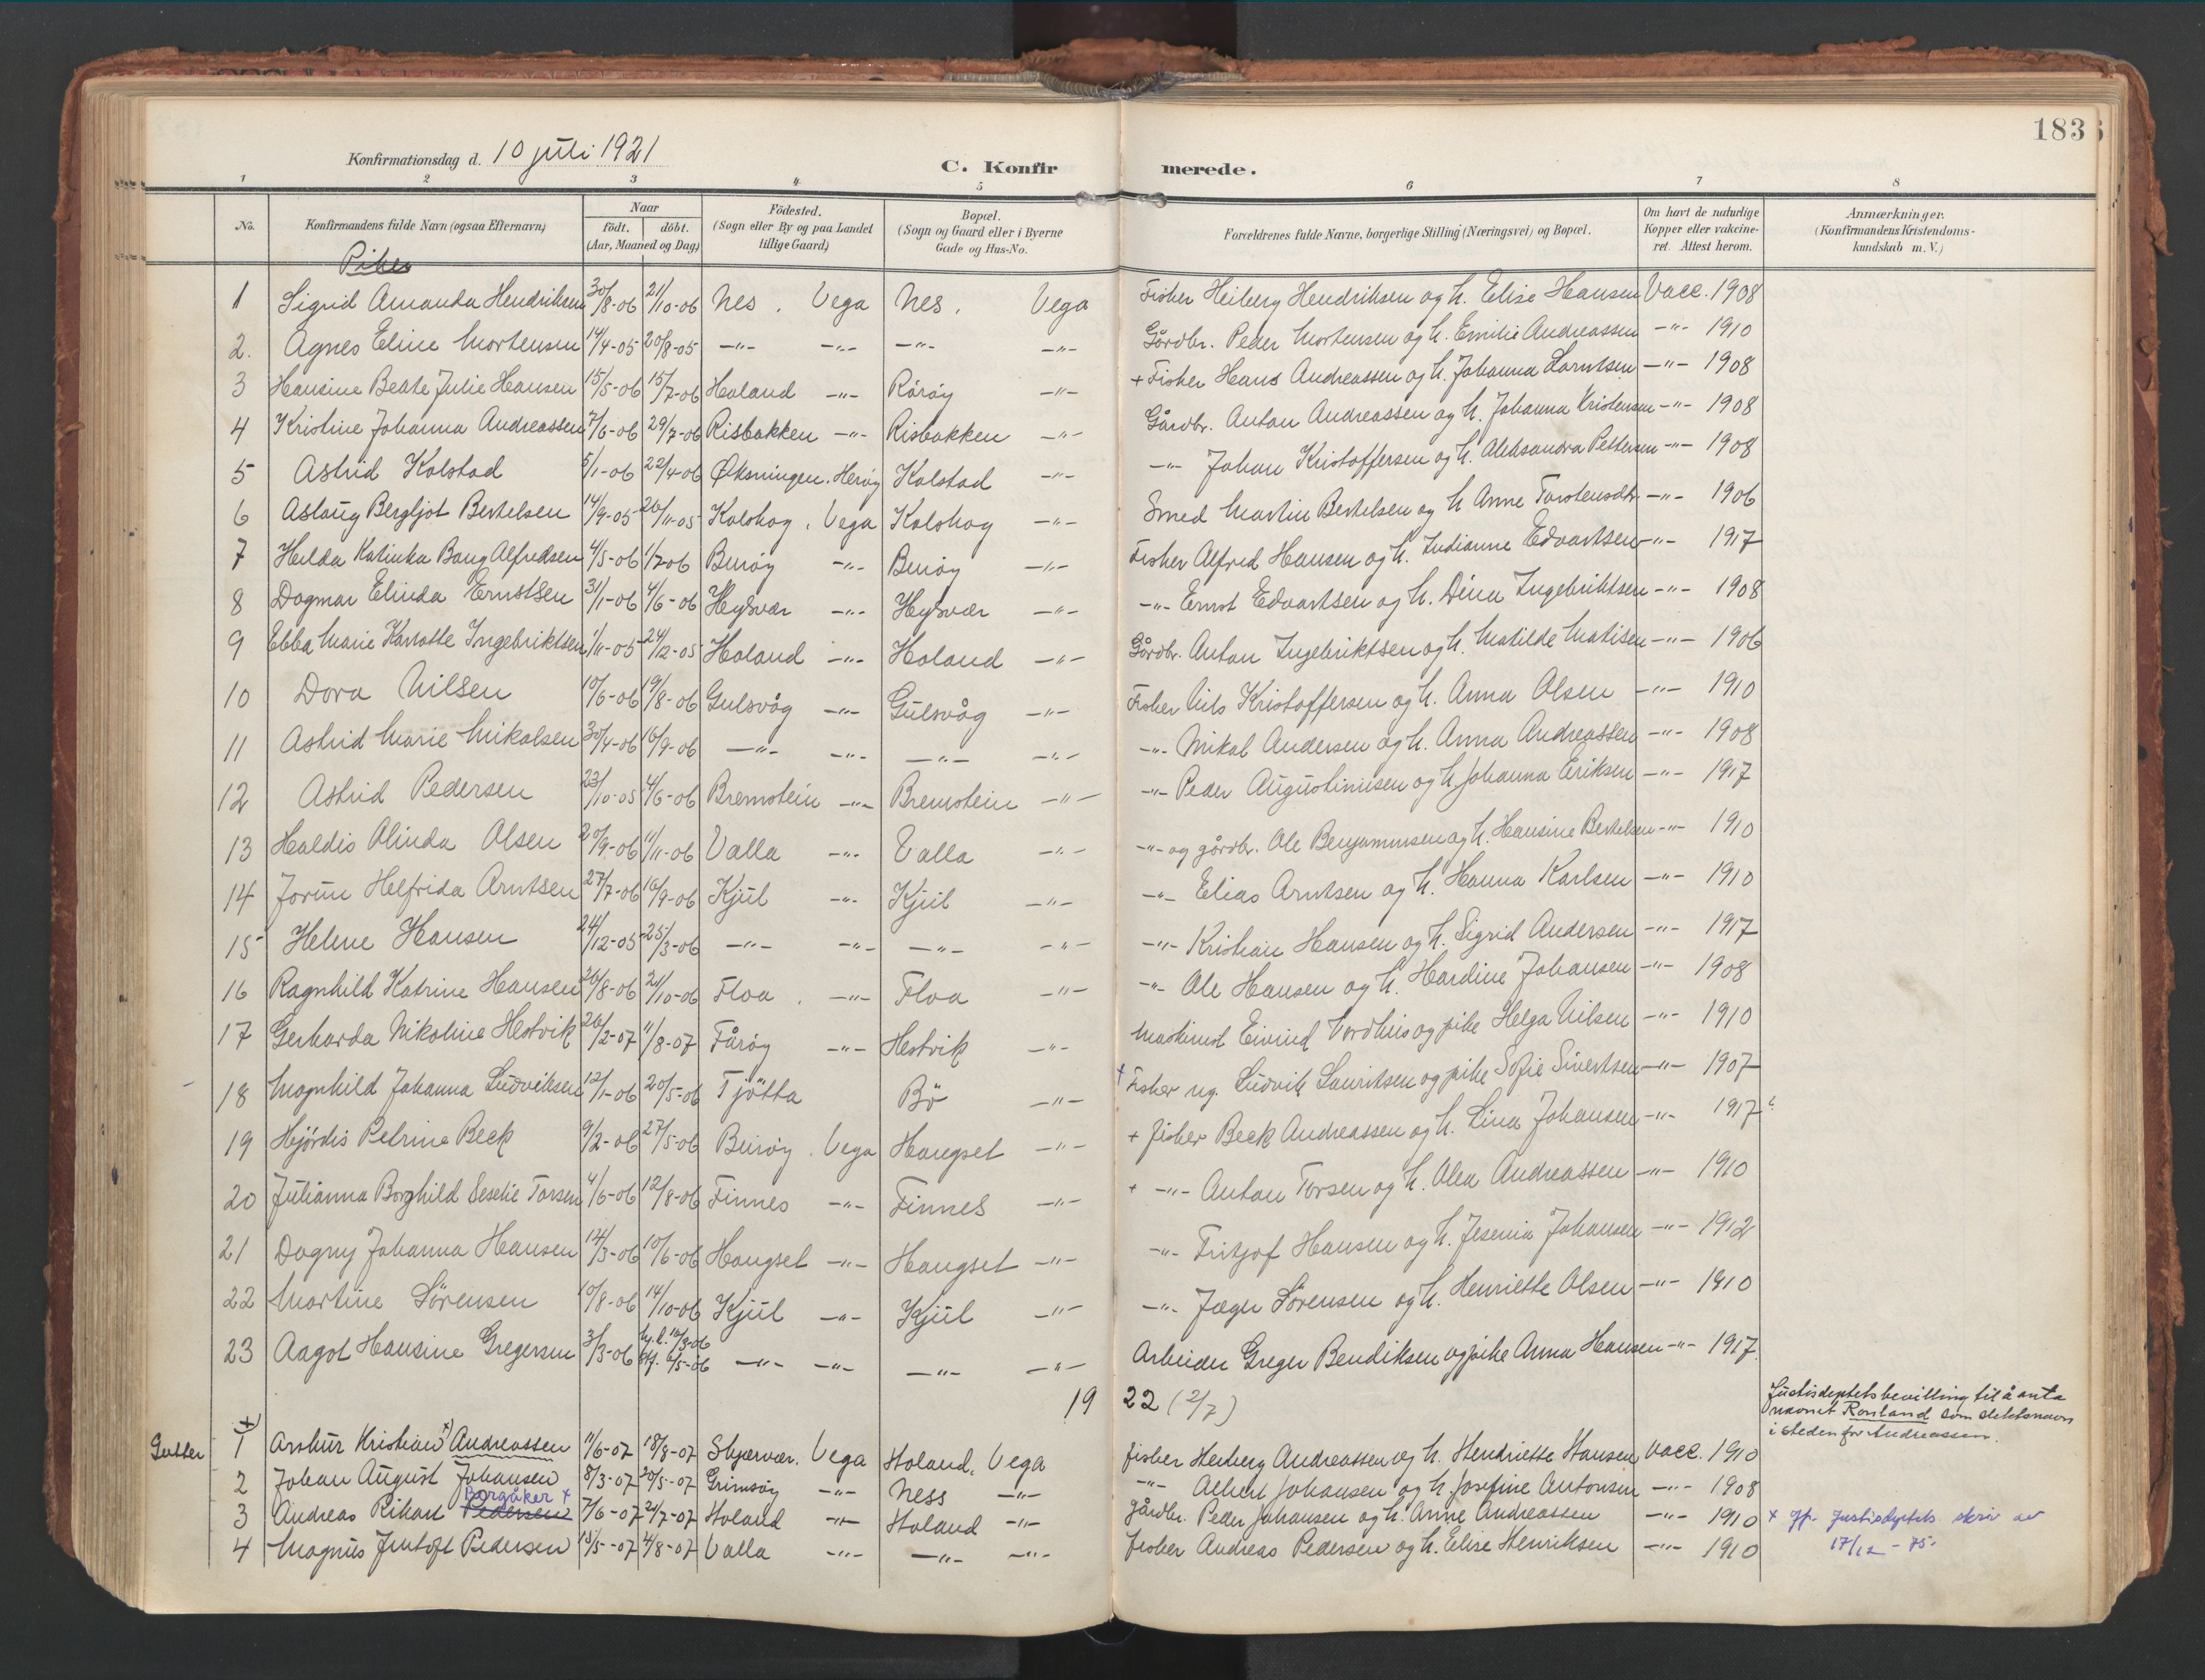 183
Konfirmationsdag d. 10 juli 1921
C. Konfirmerede.
1 2 3 4 5 6 7 8
No. Konfirmandens fulde Navn (ogsaa Efternavn) Naar födt. döbt. (Aar, Maaned og Dag) Födested. (Sogn eller By og paa Landet tillige Gaard) Bopæl. (Sogn og Gaard eller i Byerne Gade og Hus-No. Forældrenes fulde Navne, borgerlige Stilling (Næringsvei) og Bopæl. Om havt de naturlige Kopper eller vakcineret. Attest herom. Anmærkninger. (Konfirmandens Kristendomskundskab m. V.)
Piker
1 Sigrid Amanda Hendriksen 30/8-06 21/10-06 Nes . Vega Nes . Vega Fisker Heiberg Hendriksen og h. Elise Hansen Vacc. 1908
2. Agnes Eline Mortensen 14/4-05 20/8-05 -"- -"- -"- -"- Gårdbr. Peder Mortensen og h. Emilie Andreassen -"- 1910
3 Hansine Beate Julie Hansen 15/5-06 15/7-06 Holand -"- Rörøy -"- + Fisker Hans Andreassen og h. Johanna Larntsen -"- 1908
4 Kristine Johanna Andreassen 7/6-06 29/7-06 Risbakken -"- Risbakken -"- Gårdbr. Anton Andreassen og h. Johanna Kristensen -"- 1908
5 Astrid Kolstad 5/1-06 22/4-06 Øksningen . Herøy Kolstad -"- -"- Johan Kristoffersen og h. Aleksandra Pettersen -"- 1908
6 Aslaug Bergljot Bertelsen 14/9-05 26/11-05 Kolshog . Vega Kolshog -"- Smed Martin Bertelsen og h Anne Torstensdtr. -"- 1906
7 Helda Katinka Bang Alfredsen 4/5-06 1/7-06 Burøy -"- Burøy -"- Fisker Alfred Hansen og h. Indianne Edvartsen -"- 1917
8 Dagmar Elinda Ernstsen 31/1-06 4/6-06 Hysvær -"- Hysvær -"- -"- Ernst Edvartsen og h. Dina Ingebriktsen -"- 1908
9 Ebba Marie Karlotte Ingebriktsen 1/11-05 24/12-05 Holand -"- Holand -"- Gårdbr. Anton Ingebriktsen og h. Matilde Matisen -"- 1906
10 Dora Nilsen 10/6-06 19/8-06 Gulsvåg -"- Gulsvåg -"- Fisker Nils Kristoffersen og h. Anna Olsen -"- 1910
11 Astrid Marie Mikalsen 30/4-06 16/9-06 -"- -"- -"- -"- -"- Mikal Andersen og h. Anna Andreassen -"- 1908
12 Astrid Pedersen 23/10-05 4/6-06 Bremstein -"- Bremstein -"- -"- Peder Augustinusen og h. Johanna Eriksen -"- 1917
13 Haldis Alinda Olsen 20/9-06 11/11-06 Valla -"- Valla -"- -"- og gårdbr. Ole Benjaminsen og h. Hansine Bertelsen -"- 1910
14 Jorun Helfrida Arntsen 27/7-06 16/9-06 Kjul -"- Kjul -"- -"- Elias Arntsen og h. Hanna Karlsen -"- 1910
15 Helene Hansen 24/12-05 25/3-06 -"- -"- -"- -"- -"- Kristian Hansen og h. Sigrid Andersen -"- 1917
16 Ragnhild Katrine Hansen 26/8-06 21/10-06 Floa . -"- Floa -"- -"- Ole Hansen og h. Hardine Johansen -"- 1908
17 Gerharda Nikoline Hestvik 26/2-07 11/8-07 Fårøy -"- Hestvik -"- Maskinist Eivind Nordhus og pike Helga Nilsen -"- 1910
18 Magnhild Johanna Ludviksen 12/1-06 20/5-06 Tjötta Bö -"- + Fisker ug. Ludvik Lauritsen og pike Sofie Sivertsen -"- 1907
19 Hjördis Petrine Beck 9/2-06 27/5-06 Burøy . Vega Hongset -"- + fisker Beck Andreassen og h. Lina Johansen -"- 1917
20 Julianna Borghild Seselie Torsen 4/6-06 12/8-06 Finnes -"- Finnes -"- + -"- Anton Torsen og h. Olea Andreassen -"- 1910
21 Dagny Johanna Hansen 14/3-06 10/6-06 Hongset -"- Hongset -"- -"- Fritjof Hansen og h. Jesenia Johansen -"- 1912
22 Martine Sørensen 10/8-06 14/10-06 Kjul -"- Kjul -"- -"- Jæger Sörensen og h. Henriette Olsen -"- 1910
23 Aagot Hansine Gregersen 3/3-06 hj. d. 10/3-06 stf. 6/5-06 -"- -"- -"- -"- Arbeider Greger Bendiksen og pike Anna Hansen -"- 1917
19 22 (2/7)
Justisdeptets bevilling til å anta
navnet Ronland som slektsnavn
i steden for Andreassen.
Gutter +) 1 Arthur Kristian +) Andreassen 11/6-07 18/8-07 Skjærvær. Vega Holand. Vega fisker Heiberg Andreassen og h. Hendriette Hansen Vacc. 1910
2 Johan August Johansen 8/3-07 20/5-07 Grimsøy -"- Ness -"- -"- Albert Johansen og h. Josefine Antonsen -"- 1908
Borgåker +
3 Andreas Rikart Pedersen 7/6-07 21/7-07 Holand -"- Holand -"- gårdbr. Peder Johansen og h. Anne Andreassen -"- 1910 + jfr. Justisdeptets skriv av
17/12 - 75.
4 Magnus Jentoft Pedersen 15/5-07 4/8-07 Valla -"- -"- -"- fisker Andreas Pedersen og h. Elise Henriksen -"- 1910